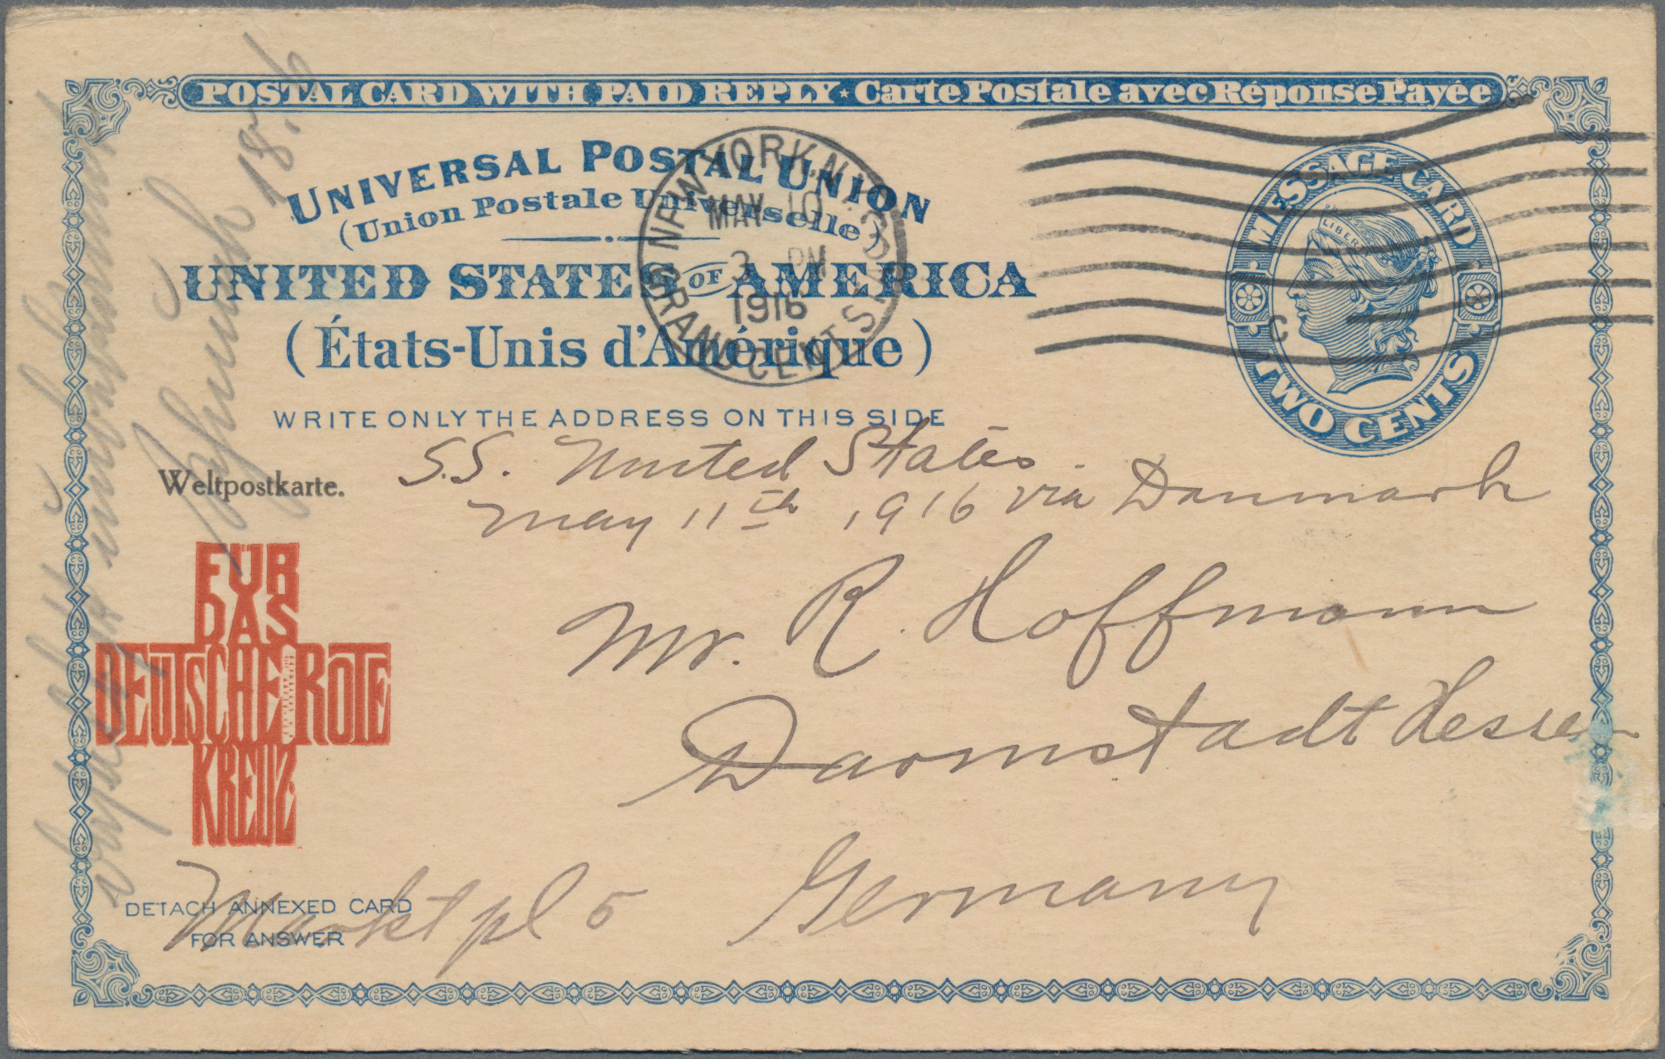 POSTAL CARD WITH PAID REPLY ★ Carte Postale avec Réponse Payée
UNIVERSAL POSTAL UNION
(Union Postale Universelle)
UNITED STATES OF AMERICA
(États-Unis d'Amérique)
WRITE ONLY THE ADDRESS ON THIS SIDE
NEW YORK, N.Y.
MAY 10
3 PM
1916
GRAND CENT. STA.
MESSAGE CARD
LIBERTY
C
TWO CENTS
Weltpostkarte.
S.S. United States.
May 11th, 1916 via Danmark
Mr. R. Hoffmann
Darmstadt Hessen
Marktpl 5 Germany
FÜR
DAS
DEUTSCHE ROTE
KREUZ
DETACH ANNEXED CARD
FOR ANSWER
18. 6